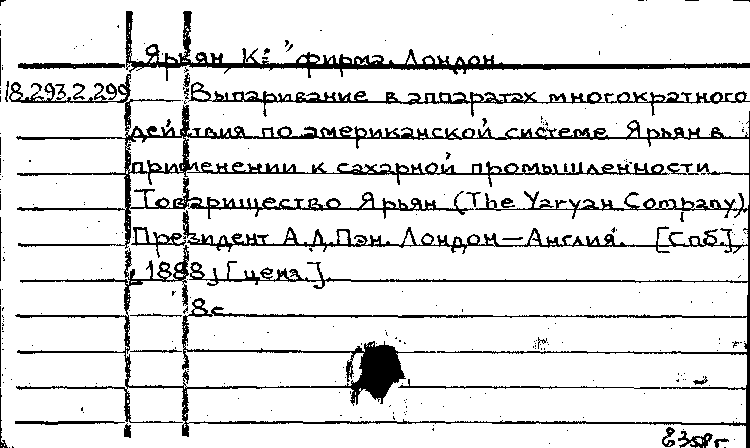 Ярьян, К°, фирма. Лондон.
18.293.2.299 Выпаривание в аппаратах многократного
действия по американской системе Ярьян в
применении к сахарной промышленности.
Товарищество Ярьян (The Yaryan Company).
Президент А.Д.Пэн. Лондон—Англия. [Спб.],
, 1888, [цена.].
8с.